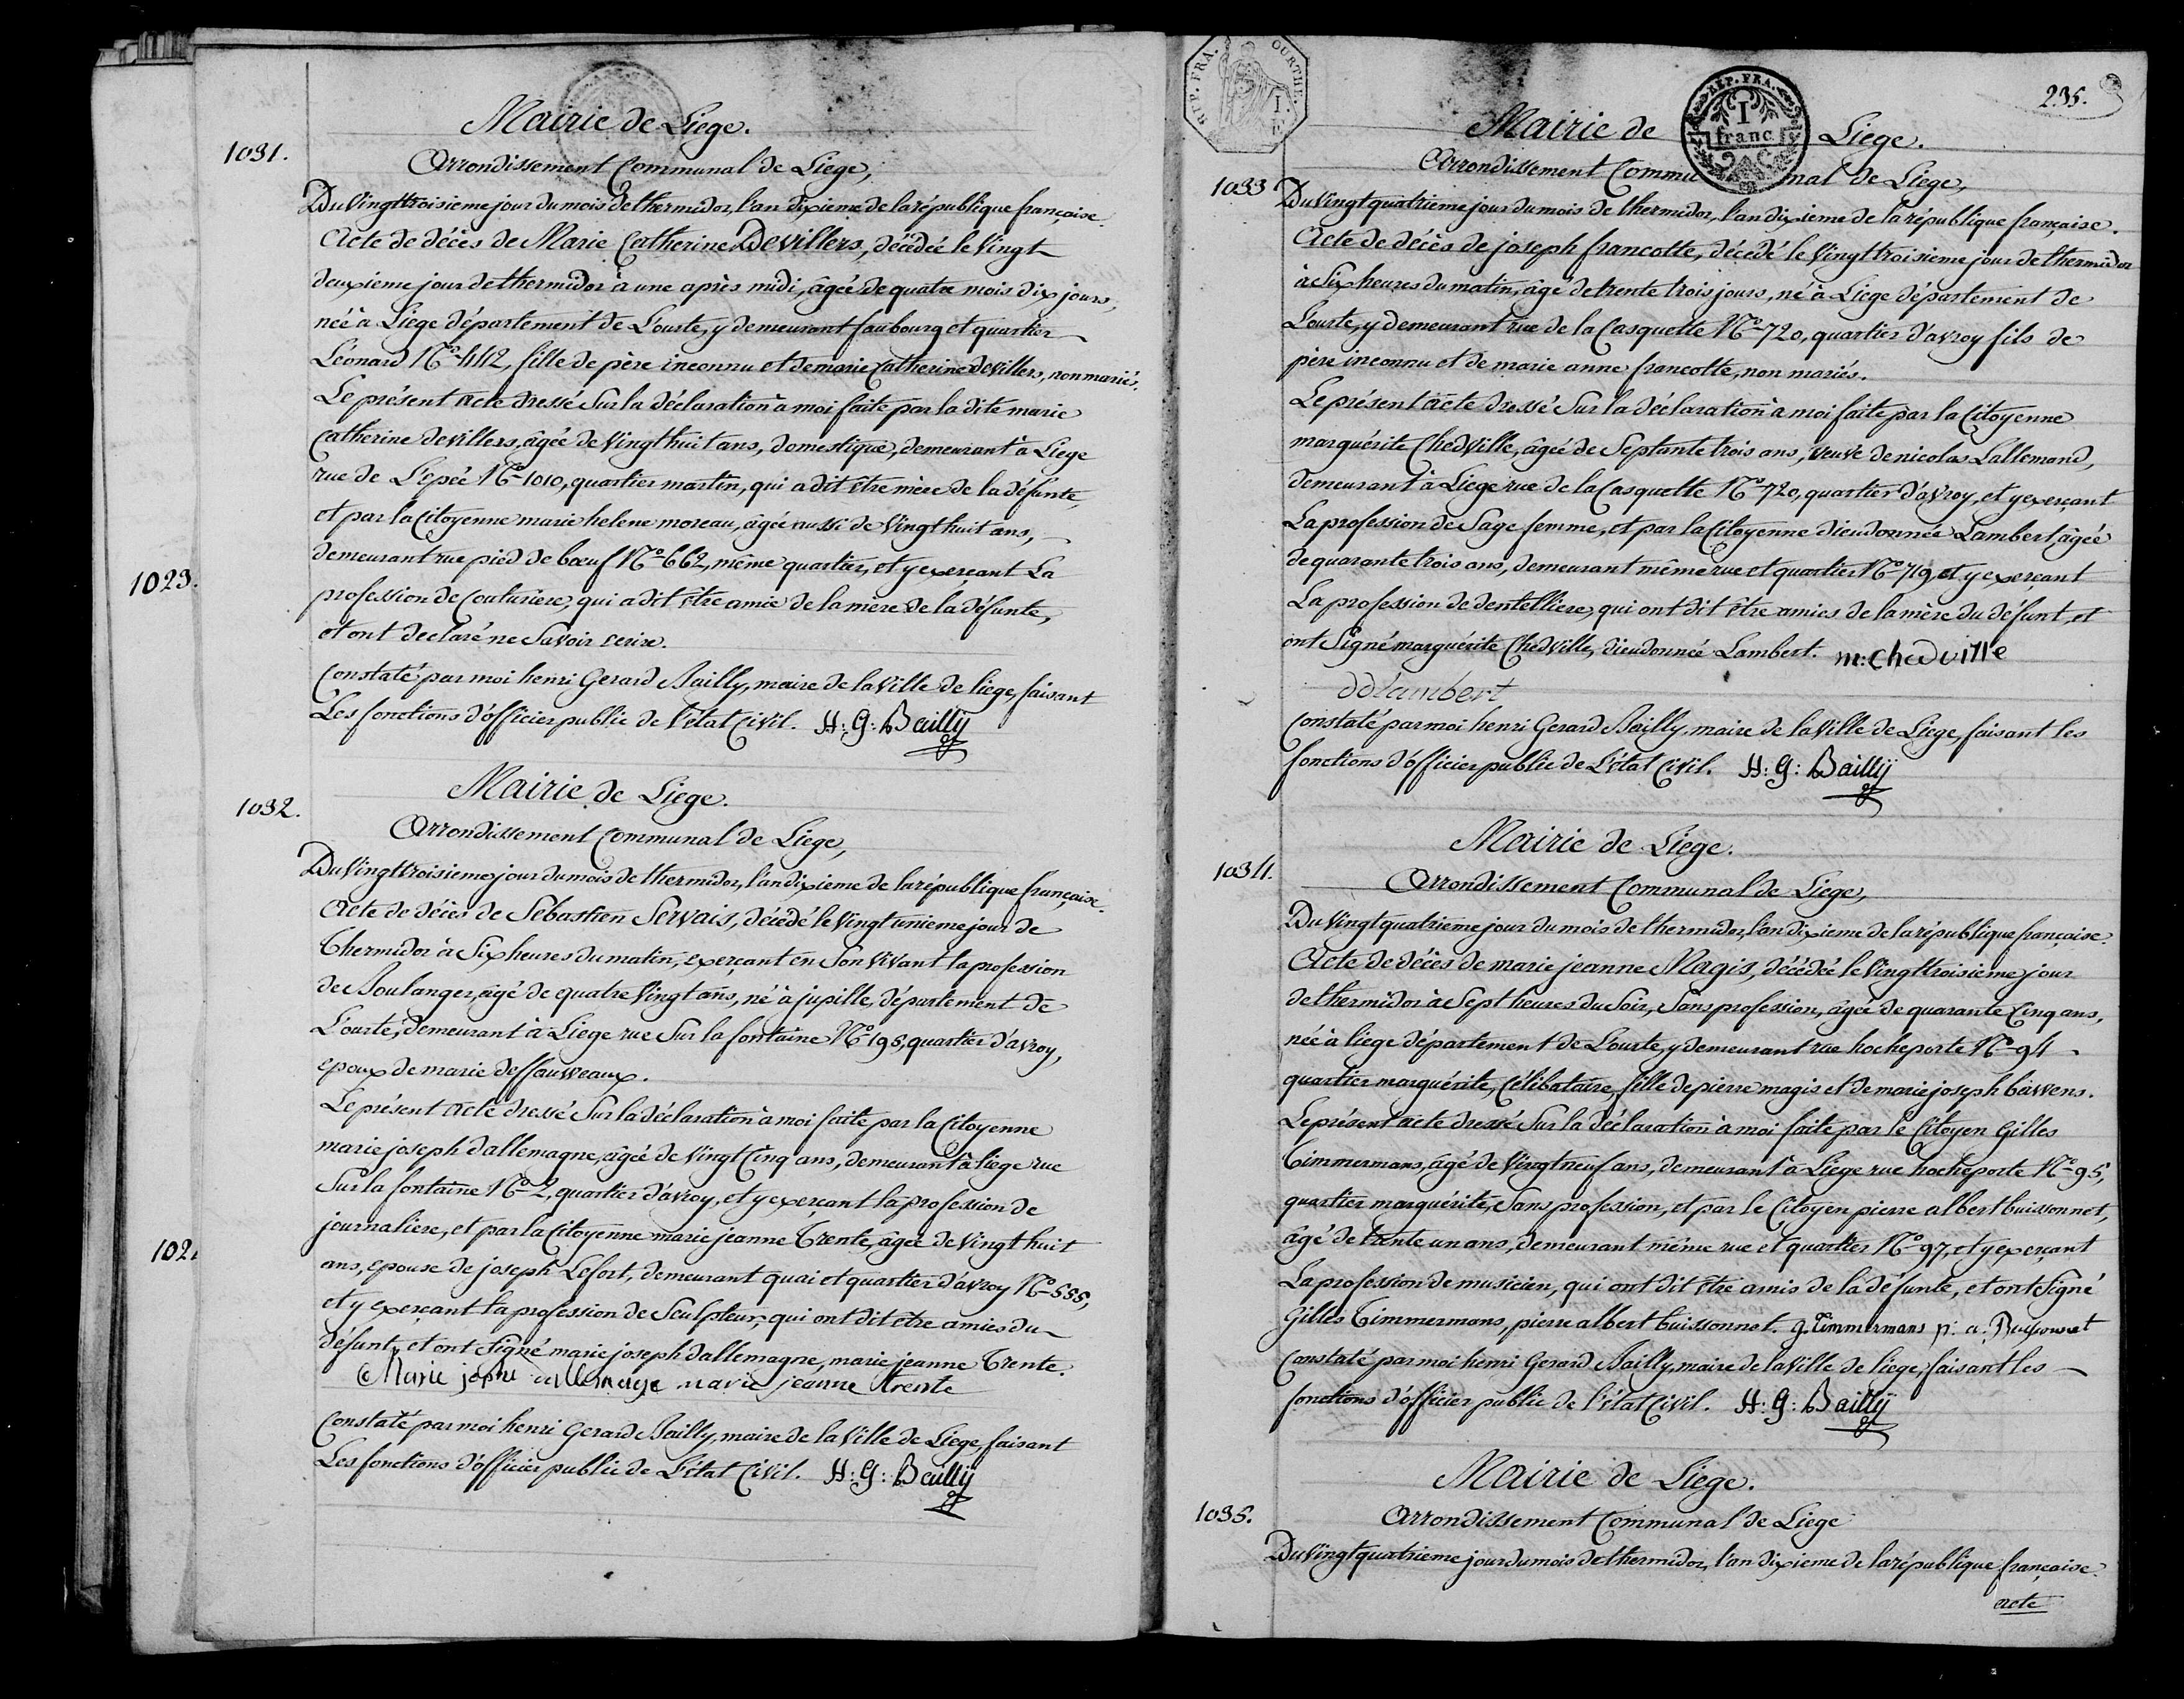 Mairie de Liege.
1031.
Arrondissement Communal de Liege,
Du vingttroisieme jour du mois de thermidor, l'an dixieme de la république française.
Acte de décès de Marie Catherine Devillers, décédée le vingt
deuxieme jour de thermidor à une après midi, âgée de quatre mois dix jours,
née à Liege département de L'ourte, y demeurant faubourg et quartier
Léonard N.º 442, fille de père inconnu et de marie Catherine devillers, non mariés.
Le présent acte dressé Sur la déclaration à moi faite par la dite marie
Catherine devillers, âgée de vingthuit ans, domestique, demeurant à Liege
rue de L'epée N.º 1010, quartier martin, qui a dit être mère de la défunte,
et par la Citoyenne marie helene moreau, âgée aussi de vingthuit ans,
demeurant rue pied de bœuf N.º 662, même quartier, et y exerçant La
1023.
profession de Couturiere, qui a dit être amie de la mere de la défunte,
et ont declaré ne Savoir ecrire.
Constaté par moi henri Gerard Bailly, maire de la ville de liege, faisant
Les fonctions d'officier public de l'état Civil. H: G: Bailly
Mairie de Liege.
1032.
Arrondissement Communal de Liege,
Du vingttroisieme jour du mois de thermidor, l'an dixieme de la république française.
Acte de décès de Sébastien Servais, décédé le vingtunieme jour de
Thermidor à Six heures du matin, exerçant en Son vivant la profession
de Boulanger, âgé de quatre vingt ans, né à jupille, département de
L'ourte, demeurant à Liege rue Sur la fontaine N.º 198, quartier d'avroy,
epoux de marie deffauweaux.
Le présent acte dressé Sur la déclaration à moi faite par la Citoyenne
marie joseph dallemagne, âgée de vingt Cinq ans, demeurant à liege rue
Sur la fontaine N.º 2, quartier d'avroy, et y exerçant la profession de
journaliere, et par la Citoyenne marie jeanne Trente, âgée de vingt huit
102
ans, epouse de joseph Lefort, demeurant quai et quartier d'avroy N.º 555,
et y exerçant la profession de Sculpteur, qui ont dit être amies du
défunt, et ont Signé marie joseph dallemagne, marie jeanne Trente.
Marie jophe dallemagne marie jeanne trente
Constaté par moi henri Gerard Bailly, maire de la ville de Liege, faisant
Les fonctions d'officier public de L'état Civil. H: G: Bailly
REP. FRA. OURTHE. 1. F.
REP. FRA. I franc
235.
Mairie de Liege.
Arrondissement Communal de Liege,
1033
Du vingtquatrieme jour du mois de thermidor, l'an dixieme de la république française.
Acte de décès de joseph francotte, décédé le vingttroisieme jour de thermidor
à Six heures du matin, âgé de trente trois jours, né à Liege département de
L'ourte, y demeurant rue de la Casquette N.º 720, quartier d'avroy fils de
père inconnu et de marie anne francotte, non mariés.
Le présent acte dressé Sur la déclaration à moi faite par la Citoyenne
marguérite Chedville, âgée de Septante trois ans, veuve de nicolas Lallemand,
demeurant à Liege rue de la Casquette N.º 720, quartier d'avroy, et y exerçant
La profession de Sage femme, et par la Citoyenne dieudonnée Lambert, âgée
de quarante trois ans, demeurant même rue et quartier N.º 719, et y exerçant
La profession de dentelliere, qui ont dit être amies de la mère du défunt, et
ont Signé marguérite Chedville, dieudonnée Lambert. m: Chedville
dd lambert
Constaté par moi henri Gerard Bailly, maire de la ville de Liege, faisant les
fonctions d'officier public de L'état Civil. H: G: Bailly
Mairie de Liege.
1034.
Arrondissement Communal de Liege,
Du vingtquatrieme jour du mois de thermidor, l'an dixieme de la république française.
Acte de décès de marie jeanne Magis, décédée le vingttroisieme jour
de thermidor à Sept heures du Soir, Sans profession, âgée de quarante Cinq ans,
née à liege département de L'ourte, y demeurant rue hocheporte N.º 94
quartier marguérite, Célibataire, fille de pierre magis et de marie joseph bawens.
Le présent acte dressé Sur la déclaration à moi faite par le Citoyen Gilles
Timmermans, âgé de vingtneuf ans, demeurant à Liege rue hocheporte N.º 95,
quartier marguérite, Sans profession, et par le Citoyen pierre albert buissonnet,
âgé de trente un ans, demeurant même rue et quartier N.º 97, et y exerçant
La profession de musicien, qui ont dit être amis de la défunte, et ont Signé
Gilles Timmermans, pierre albert buissonnet. g. Timmermans p: a: Buissonnet
Constaté par moi henri Gerard Bailly, maire de la ville de liege, faisant les
fonctions d'officier public de l'état Civil. H: G: Bailly
Mairie de Liege.
1035.
Arrondissement Communal de Liege
Du vingtquatrieme jour du mois de thermidor, l'an dixieme de la république française.
acte